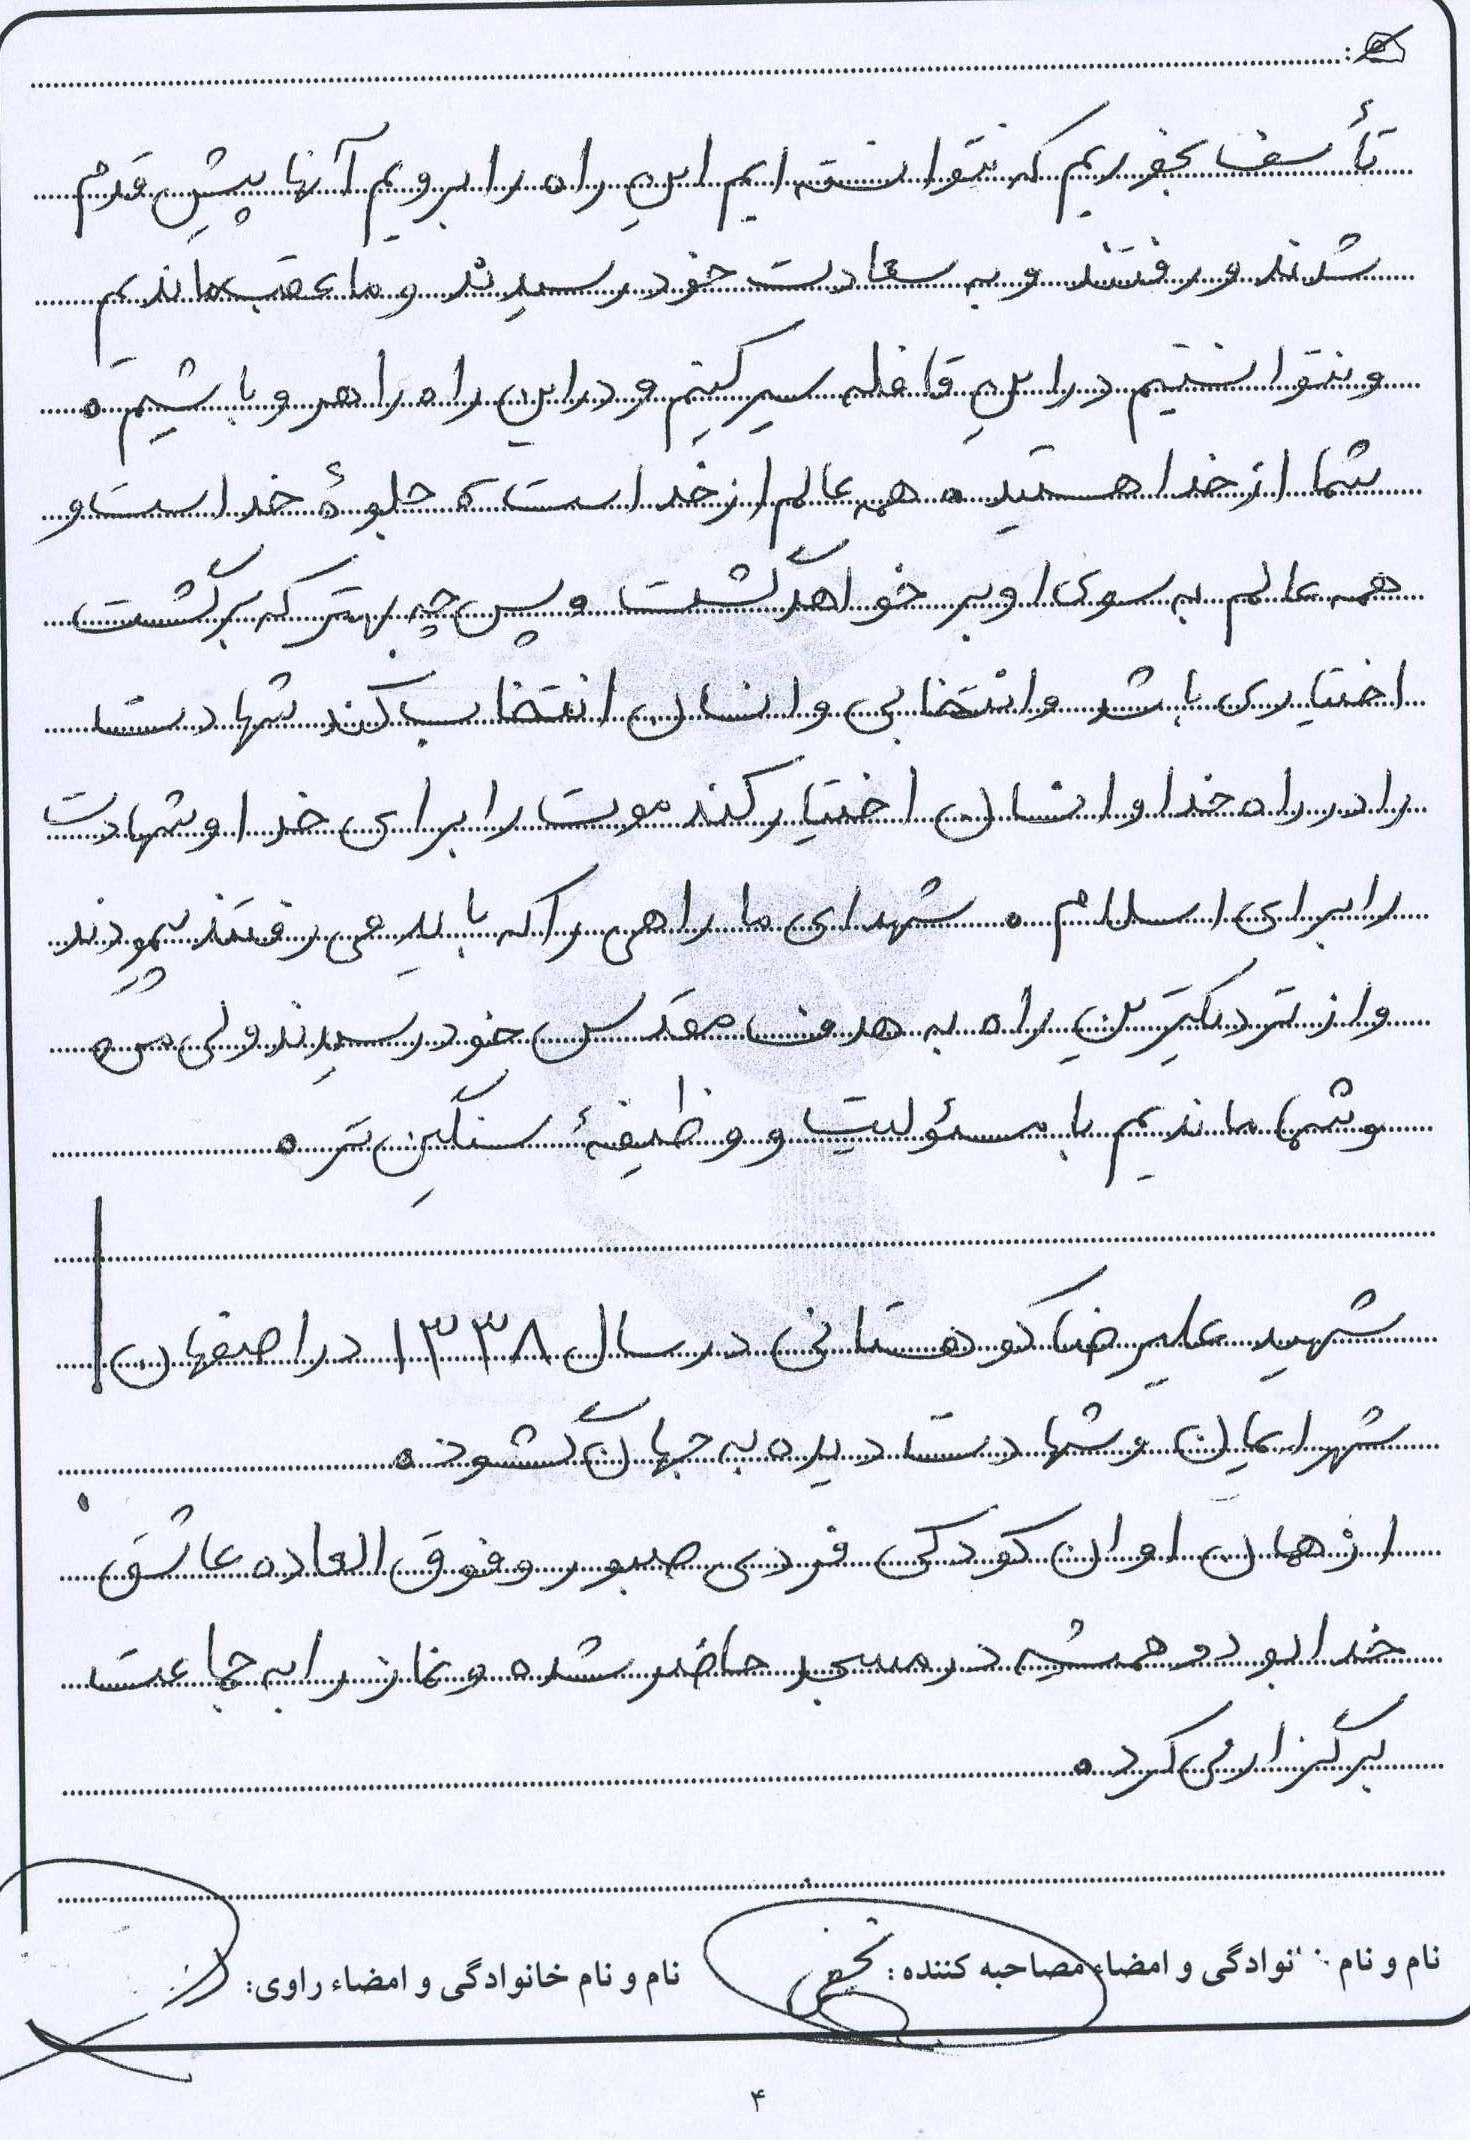 تأسف بخوریم که نتوانسته ایم این راه را برویم آنها پیش قدم
شدند و رفتند و به سعادت خود رسیدند و ما عقب ماندیم
و نتوانستیم در این قافله سیر کنیم و در این راه راهرو باشیم.
شما از خدا هستید. همه عالم از خداست، جلوۀ خداست و
همه عالم به سوی او بر خواهد گشت و پس چه بهتر که برگشت
اختیاری باشد و انتخابی و انسان انتخاب کند شهادت
را در راه خدا و انسان اختیار کند موت را برای خدا و شهادت
را برای اسلام. شهدای ما راهی را که باید می رفتند پیمودند
و از نزدیکترین راه به هدف مقدس خود رسیدند ولی من
و شما ماندیم با مسئولیت و وظیفۀ سنگین تر.
شهید علیرضا کوهستانی در سال ۱۳۳۸ در اصفهان
شهر ایمان و شهادت دیده به جهان گشود.
از همان اوان کودکی فردی صبور و فوق العاده عاشق
خدا بود و همیشه در مسجد حاضر شده و نماز را به جماعت
برگزار می کرد.
نام و نام خانوادگی و امضاء مصاحبه کننده: نام و نام خانوادگی و امضاء راوی:
۴